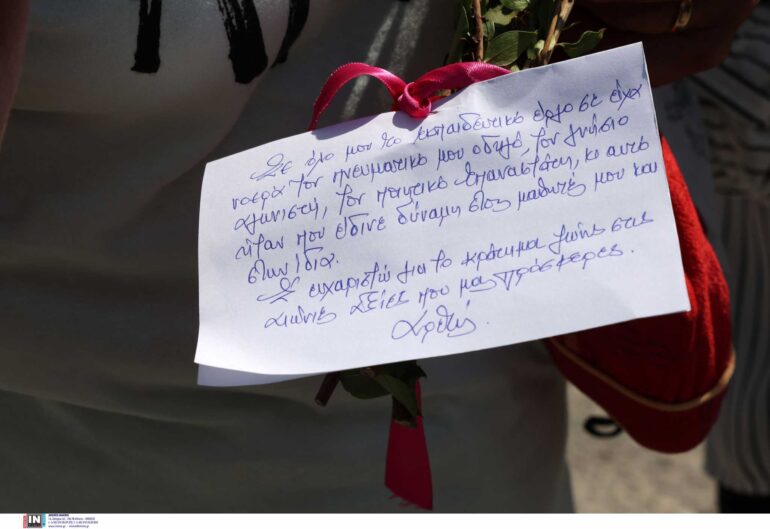 Σε όλο μου το εκπαιδευτικό έργο σε είχα
νοερά τον πνευματικό μου οδηγό, τον γνήσιο
αγωνιστή, τον ποιητικό επαναστάτη, κι αυτό
ήταν που έδινε δύναμη στους μαθητές μου και
στην ίδια.
Σε ευχαριστώ για το κράτημα ζωής στις
αιώνιες αξίες που μας πρόσφερες.
Αρετής.
IN